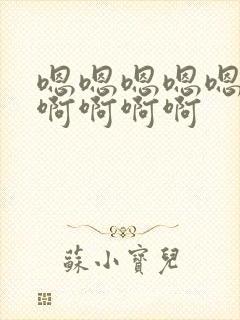 嗯嗯嗯嗯嗯
啊啊啊啊
蘇小寶兒